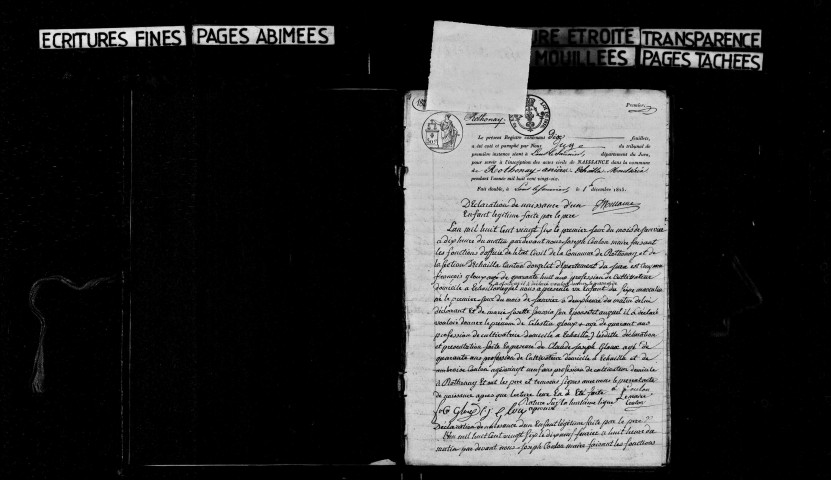 ECRITURES FINES PAGES ABIMEES
URE ETROITE TRANSPARENCE
MOUILLEES PAGES TACHEES
Premier
Rothonay
Le présent Registre contenant Dix feuillets,
a été coté et paraphé par Nous Juge du tribunal de
première instance séant à Lons le Saunier, département du Jura,
pour servir à l'inscription des actes civils de NAISSANCE dans la commune
de Rothonay
pendant l'année mil huit cent vingt-six.
Fait double, à Lons le Saunier, le 1er décembre 1825.
Déclaration de naissance d'un
Enfant légitime faite par le père
L'an mil huit Cent vingt six le premier jour du mois de janvier
à dix heure du matin par devant nous Joseph Coulon maire faisant
les fonctions d'officier de l'état Civil de la Commune de Rothonay et de
la section d'échailla Canton d'orgelet département du jura est Comparu
françois gloux agé de quarante huit ans profession de Cultivateur
domicilié à Echailla lequel nous a présenté un Enfant du sexe masculin
né le premier jour du mois de janvier à heure du matin de lui
déclarant Et de marie josette son Epouse et auquel il a déclaré
vouloir donner le prénom de Célestin gloux agé de quarant ans
profession de cultivatrice domicilié à Echailla lesdite déclaration
et présentation faite En présence de Claude Joseph Gloux agé de
quarante ans profession de Cultivateur domicilié à Echailla et de
ambroise Coulon agé vingt neuf ans profession de cultivateur domicilié
à Rothonay Et ont les père et témoins signés avec nous le présent acte
de naissance après que lecture leur En a Eté faite
Coulon
Déclaration de naissance d'un Enfant légitime faite par le père
L'an mil huit Cent vingt six le dix neuf février à huit heure du
matin par devant nous Joseph Coulon maire faisant les fonctions